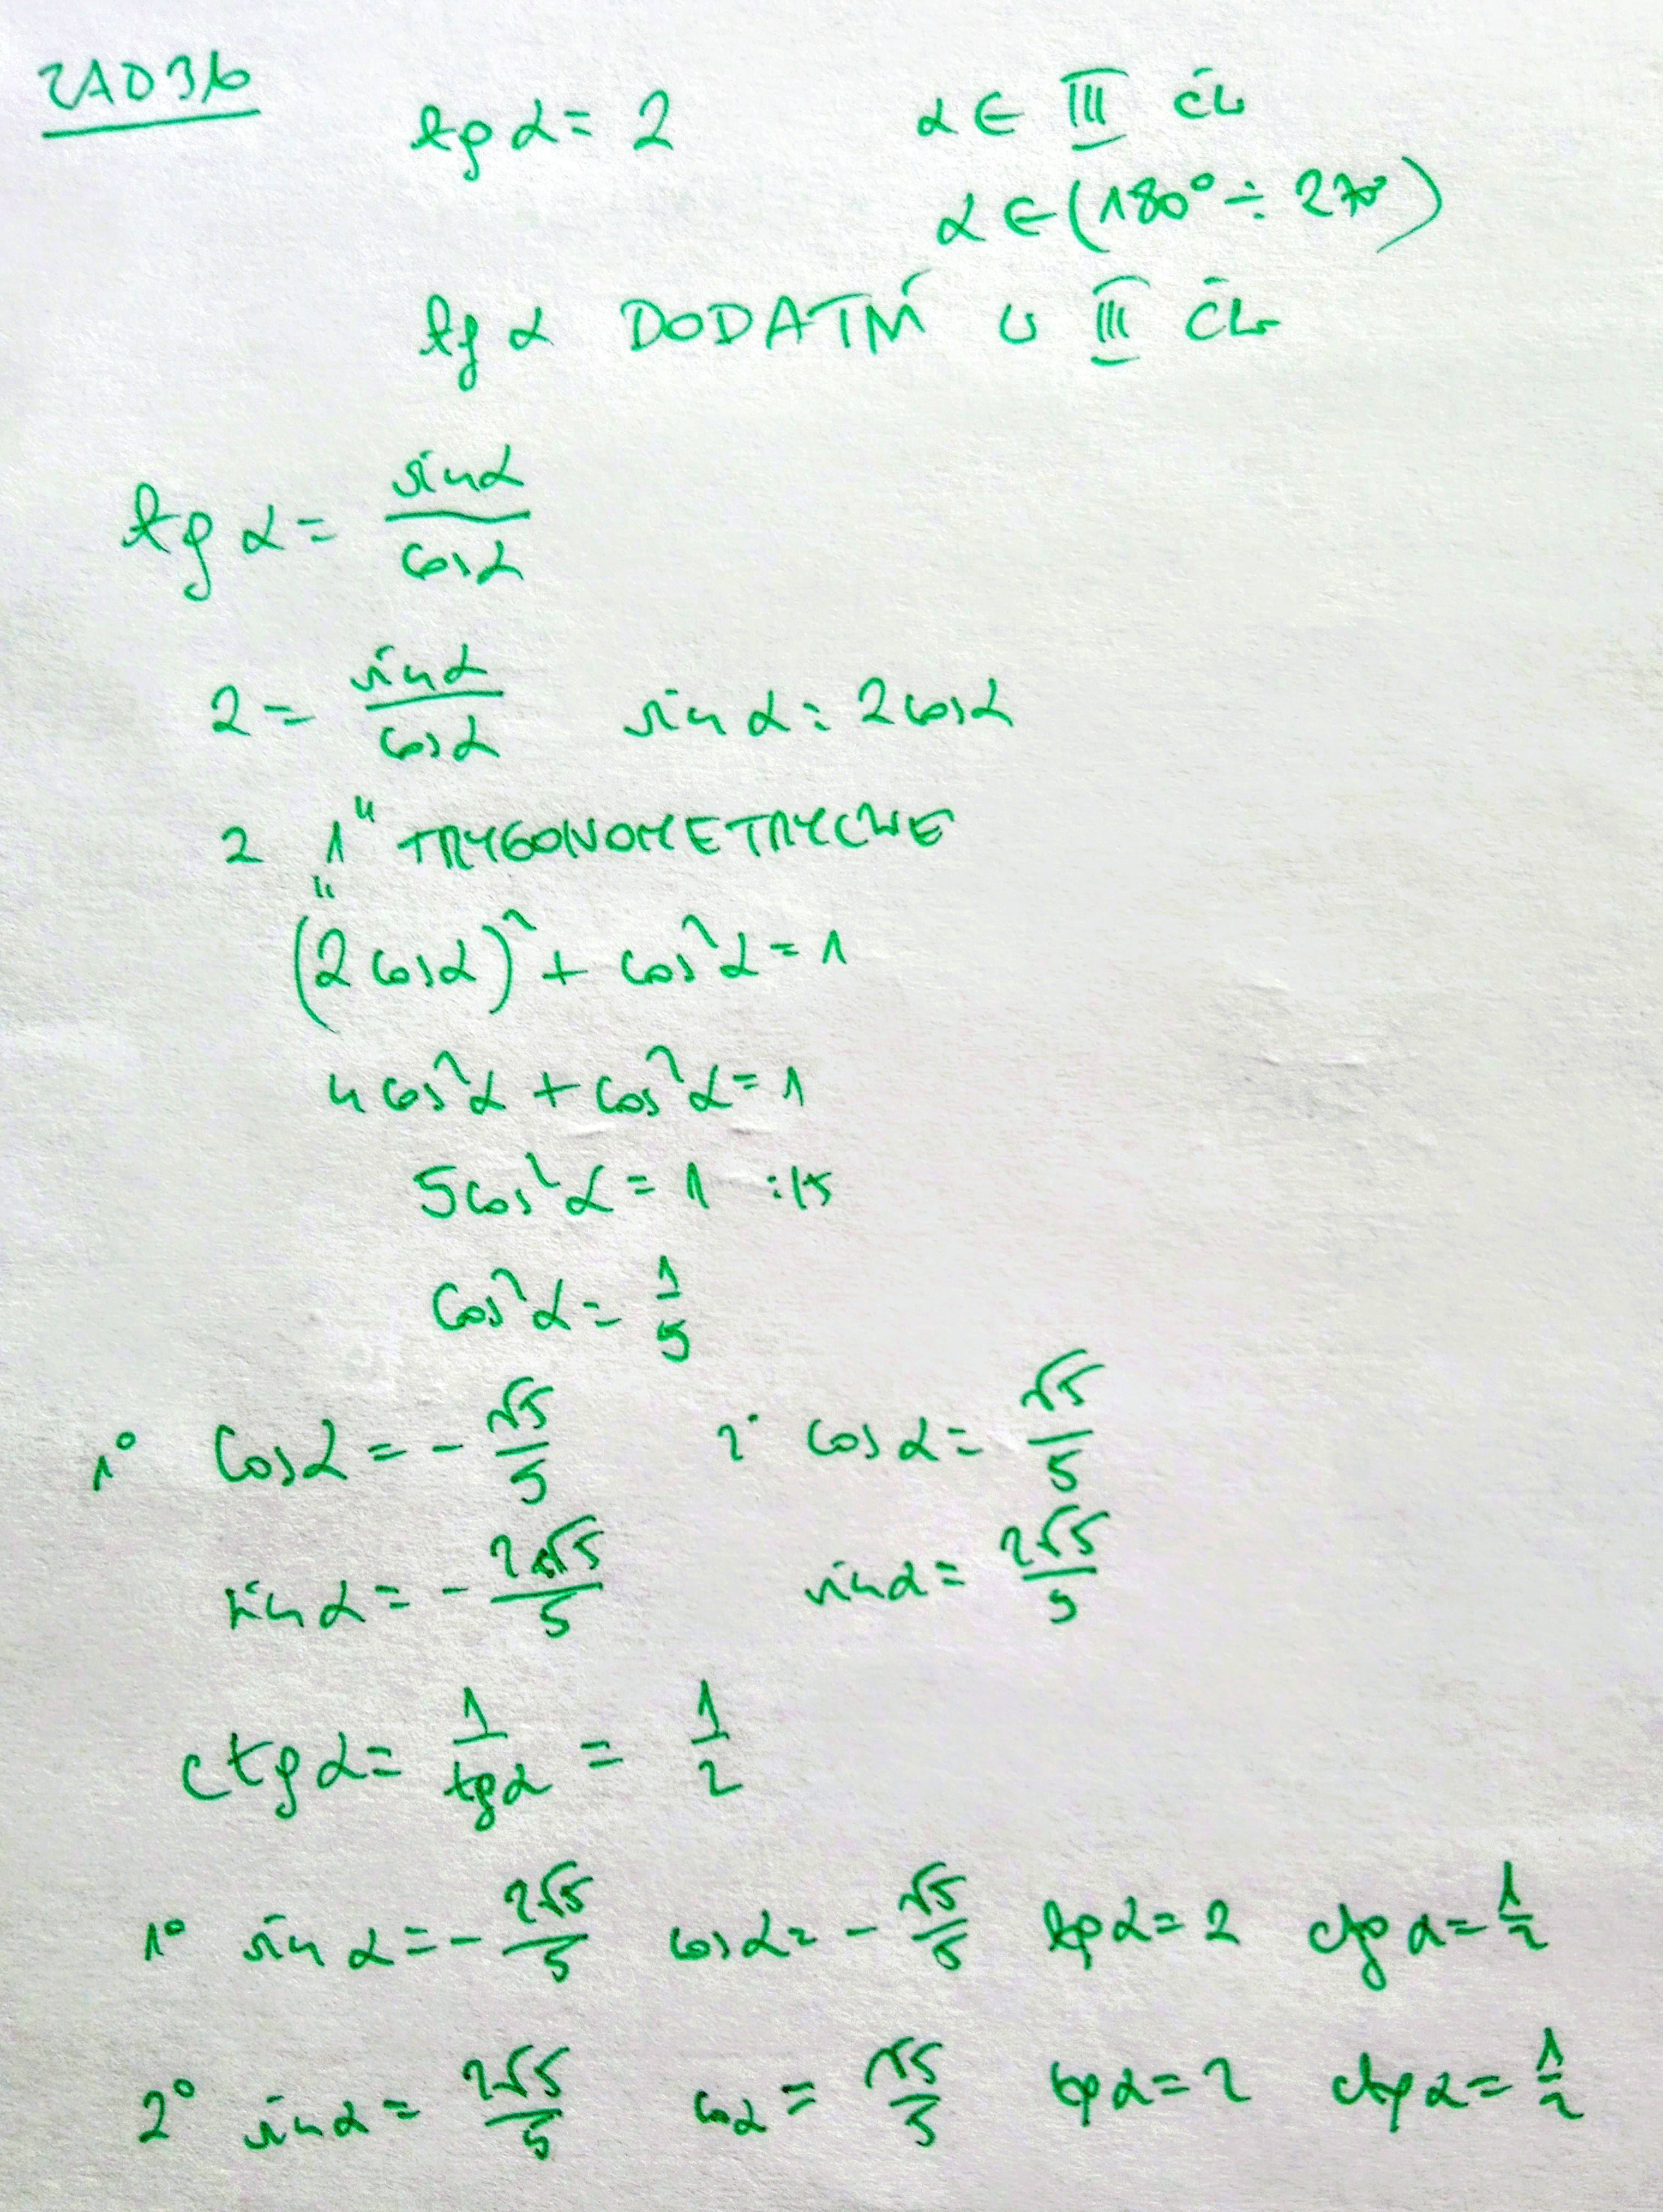 ZAD 3b
tg α = 2 α ∈ III ćw
α ∈ (180° ÷ 270°)
tg α DODATNI W III ĆW
tg α = sin α / cos α
2 = sin α / cos α sin α = 2 cos α
Z "1" TRYGONOMETRYCZNEJ
(2 cos α)² + cos² α = 1
4 cos² α + cos² α = 1
5 cos² α = 1 :|5
cos² α = 1/5
1° cos α = - √5/5 2° cos α = √5/5
sin α = - 2√5/5 sin α = 2√5/5
ctg α = 1/tg α = 1/2
1° sin α = - 2√5/5 cos α = - √5/5 tg α = 2 ctg α = 1/2
2° sin α = 2√5/5 cos α = √5/5 tg α = 2 ctg α = 1/2